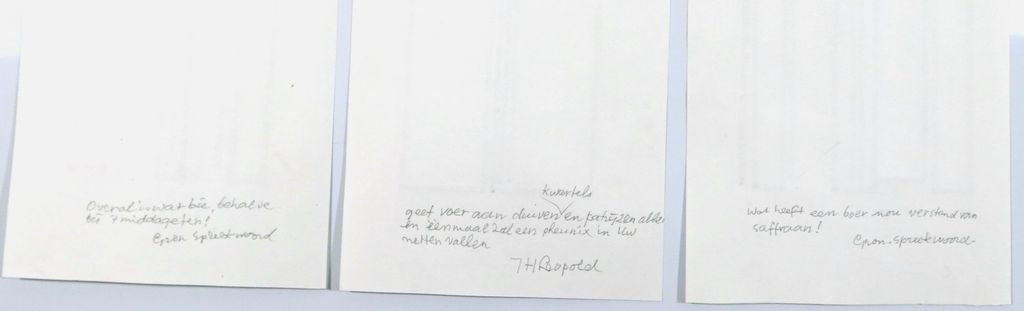 Overal is wat bie, behalve
bie 't middageten!
Gron spreekwoord
kwartels
geef voer aan duiven en patrijzen allen
en éénmaal zal een pheunix in Uw
netten vallen
JH Leopold
Wat heeft een boer nou verstand van
saffraan!
Gron. spreekwoord-